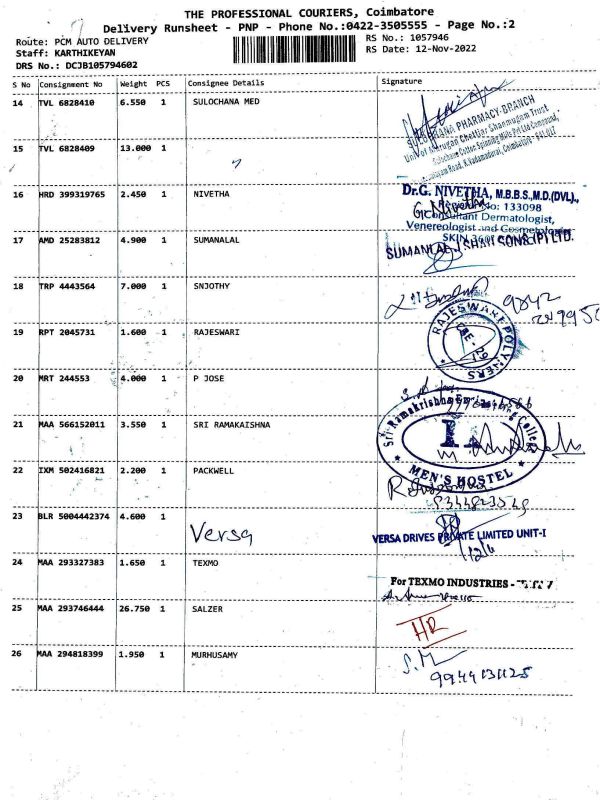 THE PROFESSIONAL COURIERS, Coimbatore
Delivery Runsheet - PNP - Phone No.:0422-3505555 - Page No.:2
Route: PCM AUTO DELIVERY
Staff: KARTHIKEYAN
DRS No.: DCJB105794602
RS No.: 1057946
RS Date: 12-Nov-2022
S No Consignment No Weight PCS Consignee Details Signature
14 TVL 6828410 6.550 1 SULOCHANA MED
SULOCHANA PHARMACY-BRANCH
15 TVL 6828409 13.000 1
16 HRD 399319765 2.450 1 NIVETHA
Dr.G. NIVETHA, M.B.B.S.,M.D.(DVL).,
Regn. No: 133098
G. Nivetha
Consultant Dermatologist,
Venereologist and Cosmetologist
17 AMD 25283812 4.900 1 SUMANALAL
SUMANLAL J SHAH SONS (P) LTD.
18 TRP 4443564 7.000 1 SNJOTHY
19 RPT 2045731 1.600 1 RAJESWARI
RAJESWARI POLYMERS
CBE - 29
20 MRT 244553 4.000 1 P JOSE
21 MAA 566152011 3.550 1 SRI RAMAKAISHNA
Sri Ramakrishna Engineering College
MEN'S HOSTEL
22 IXM 502416821 2.200 1 PACKWELL
23 BLR 5004442374 4.600 1 Versa
VERSA DRIVES PRIVATE LIMITED UNIT-I
24 MAA 293327383 1.650 1 TEXMO
For TEXMO INDUSTRIES -
25 MAA 293746444 26.750 1 SALZER
HR
26 MAA 294818399 1.950 1 MURHUSAMY
S.M
9944131125